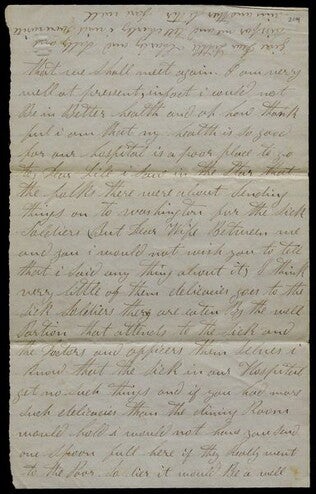 that we shall meet again. I am very
well at present, infact i could not
Be in Better health and oh how thank
ful i am that my health is so good
for our hospital is a poor place to go
the Star that
the folks there were about sending
things on to Washington for the Sick
Soldiers But Dear Wife Between me
and you i would not wish you to tell
that i said any thing about it, I think
very little of them delicacies goes to the
Sick Soldiers they are eaten By the well
Portion that attends to the sick and
the Doctors and officers them Selves i
know that the sick in our Hospital
get no such things and if you had more
such delicacies than the dining Room
would hold i would not have you send
one Spoon full here if they Really went
to the Poor Soldier it would Be a well